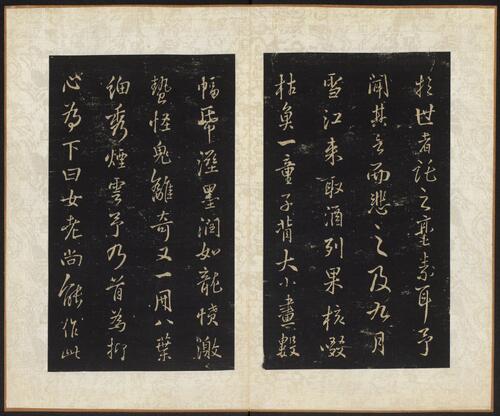 於世者託之毫素耳予
聞其言而悲之及九月
雪江來取酒列果核啜
枯魚一童子背大小畫數
幅帋溼墨潤如龍憤激
蟄怪鬼離奇又一冊八葉
細秀煙雲予乃首為抑
心為下曰女老尚能作此